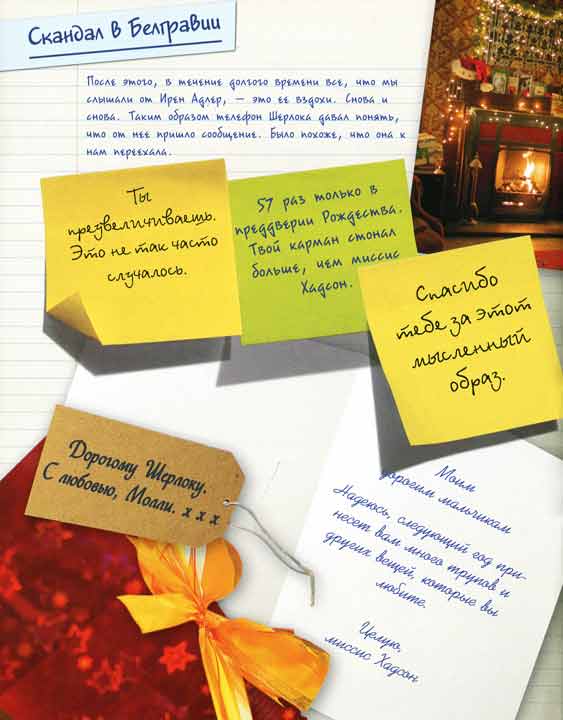 Скандал в Белгравии
После этого, в течение долгого времени все, что мы
слышали от Ирен Адлер, — это ее вздохи. Снова и
снова. Таким образом телефон Шерлока давал понять,
что от нее пришло сообщение. Было похоже, что она к
нам переехала.
Ты
преувеличиваешь.
Это не так часто
случалось.
57 раз только в
преддверии Рождества.
Твой карман стонал
больше, чем миссис
Хадсон.
Спасибо
тебе за этот
мысленный
образ.
Дорогому Шерлоку.
С любовью, Молли. x x x
Моим
дорогим мальчикам
Надеюсь, следующий год при-
несет вам много трупов и
других вещей, которые вы
любите.
Целую,
миссис Хадсон